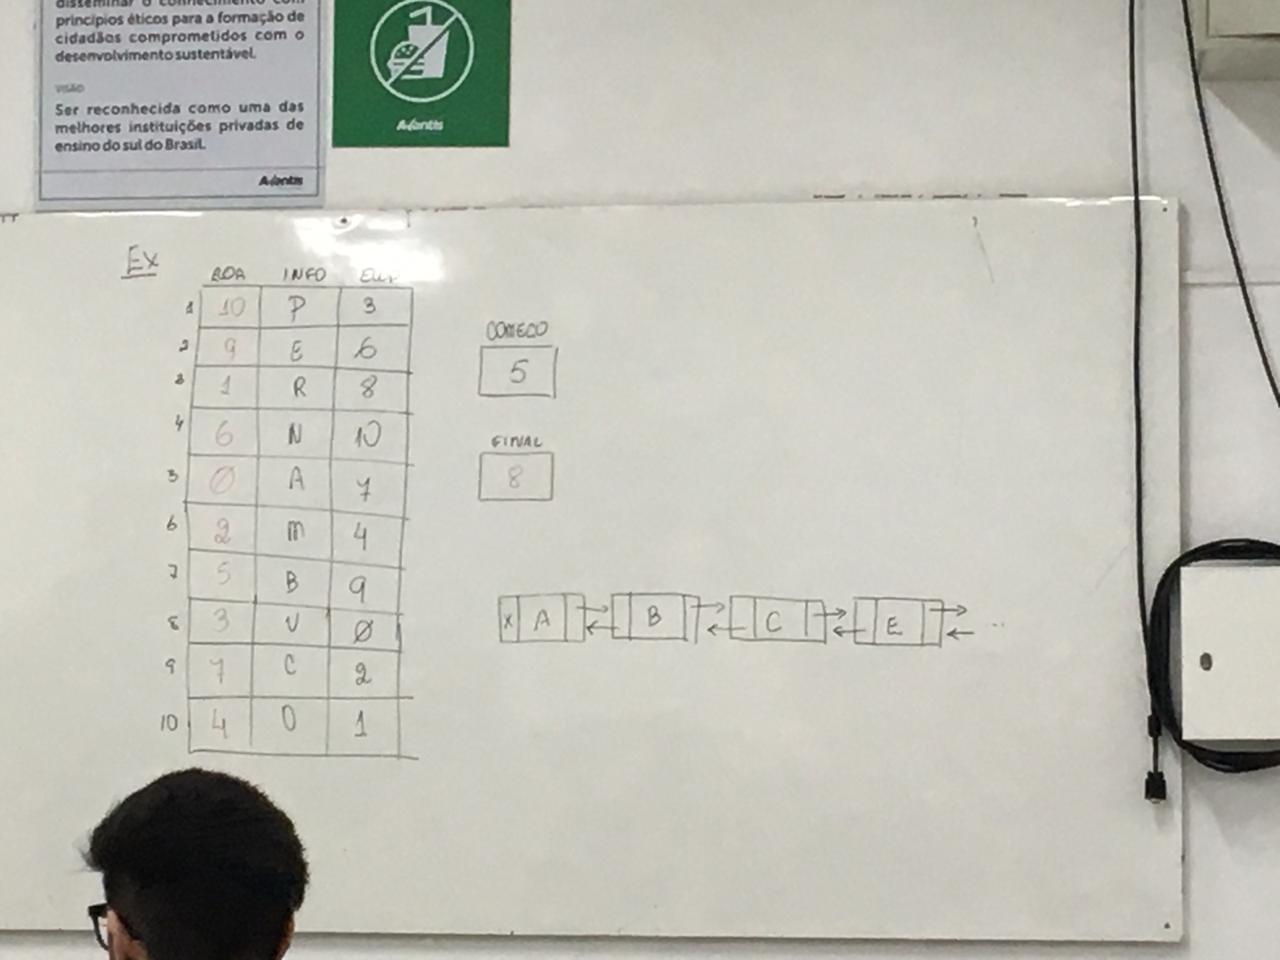 disseminar o conhecimento com
princípios éticos para a formação de
cidadãos comprometidos com o
desenvolvimento sustentável.
VISÃO
Ser reconhecida como uma das
melhores instituições privadas de
ensino do sul do Brasil.
Avantis
Avantis
Ex
INFO
1 10 P 3
2 9 E 6
3 1 R 8
4 6 N 10
5 0 A 7
6 2 M 4
7 5 B 9
8 3 U 0
9 7 C 2
10 4 O 1
COMECO
5
FINAL
8
X A B C E ..